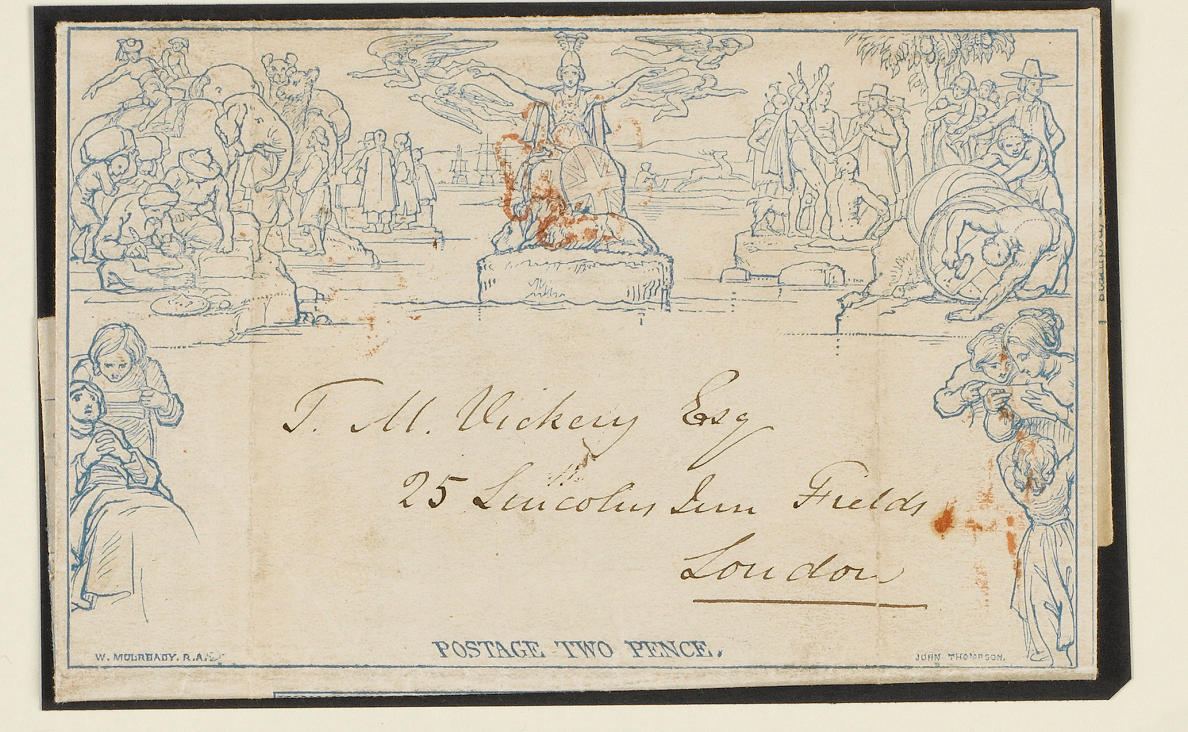 T. M. Vickery Esq
25 Lincolns Inn Fields
London
POSTAGE TWO PENCE.
W. MULREADY. R.A.
JOHN THOMPSON.